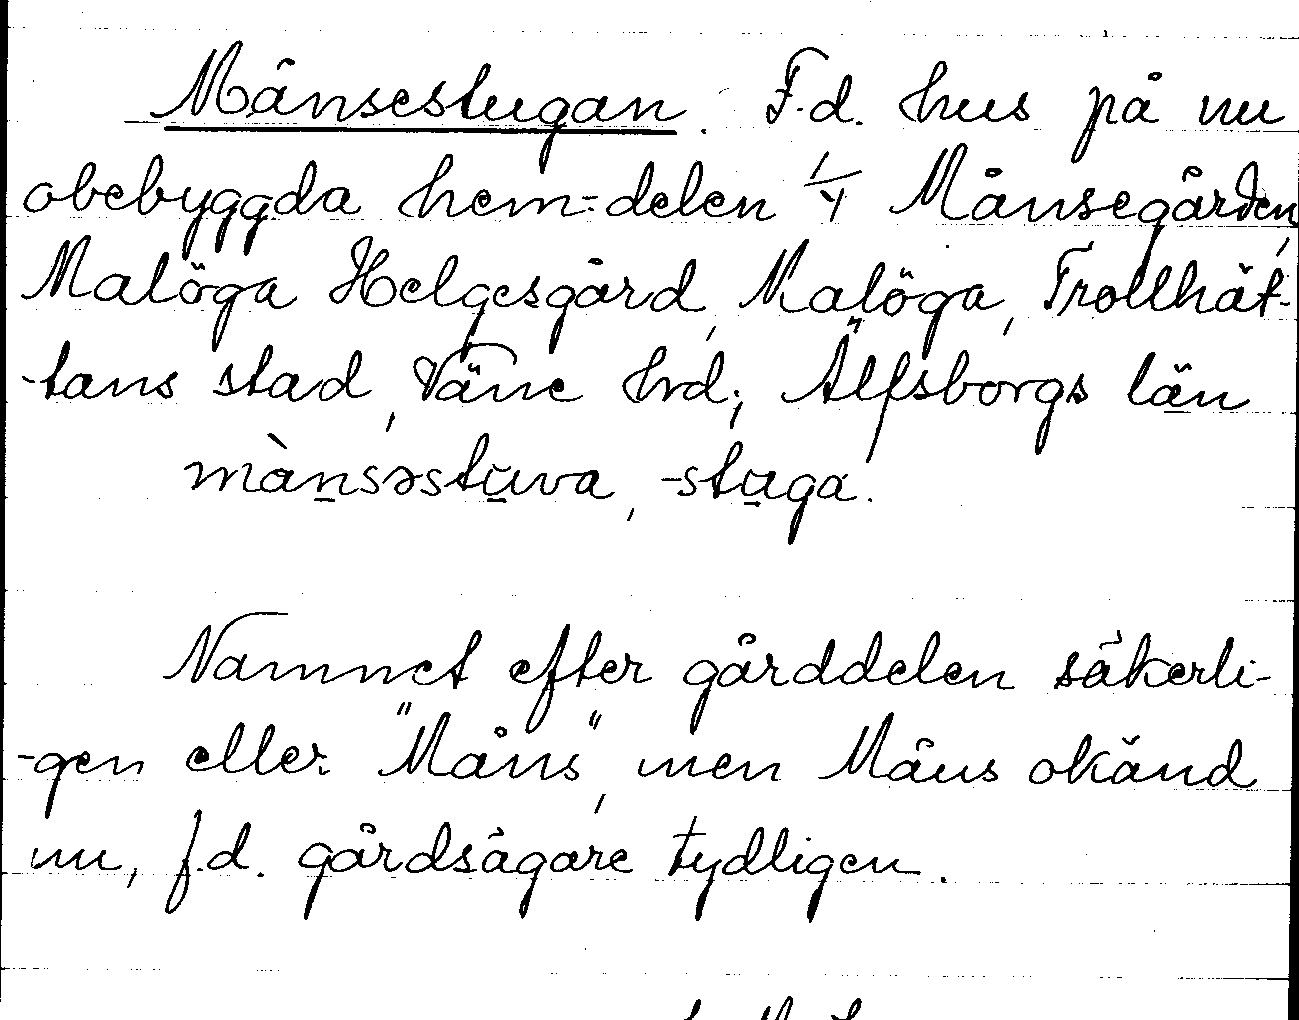 Månsestugan. F.d. hus på nu
obebyggda hem=delen 1/4 Månsegården,
Malöga Helgesgård, Malöga, Trollhät-
-tans stad, Väne hrd; Älfsborgs län
mànsəstuva, -stuga.
Namnet efter gårddelen säkerli-
-gen eller "Måns", men Måns okänd
nu, f.d. gårdsägare tydligen.